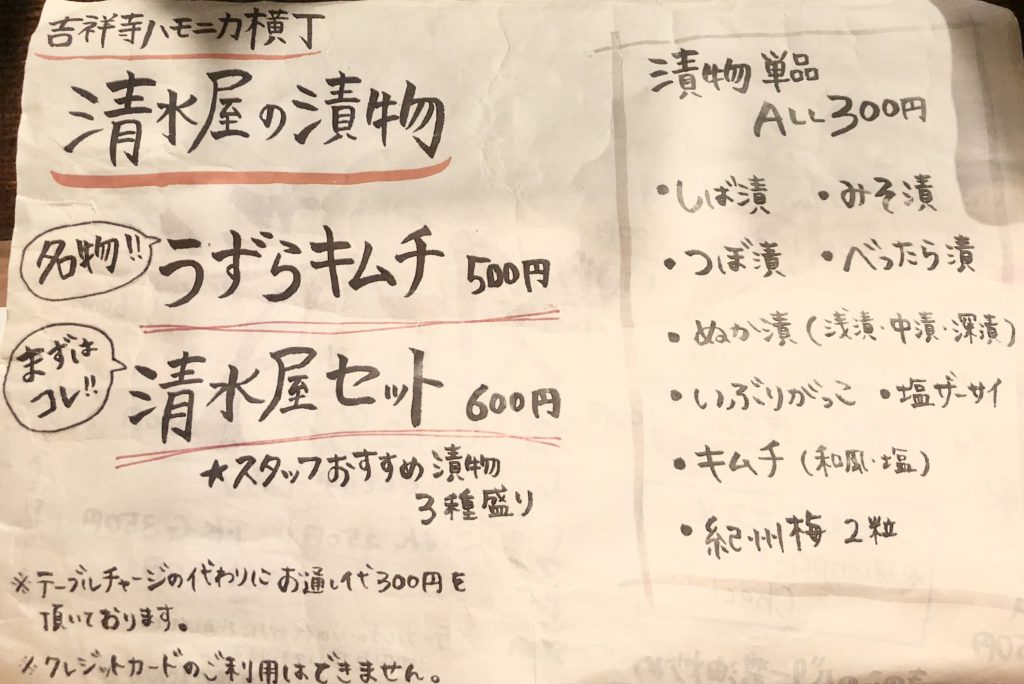 吉祥寺ハモニカ横丁
清水屋の漬物
名物!!
うずらキムチ 500円
まずは
コレ!!
清水屋セット 600円
★スタッフおすすめ漬物
3種盛り
※テーブルチャージの代わりにお通し代300円を
頂いております。
※クレジットカードのご利用はできません。
漬物単品
ALL300円
・しば漬 ・みそ漬
・つぼ漬 ・べったら漬
・ぬか漬(浅漬・中漬・深漬)
・いぶりがっこ ・塩ザーサイ
・キムチ(和風・塩)
・紀州梅 2粒